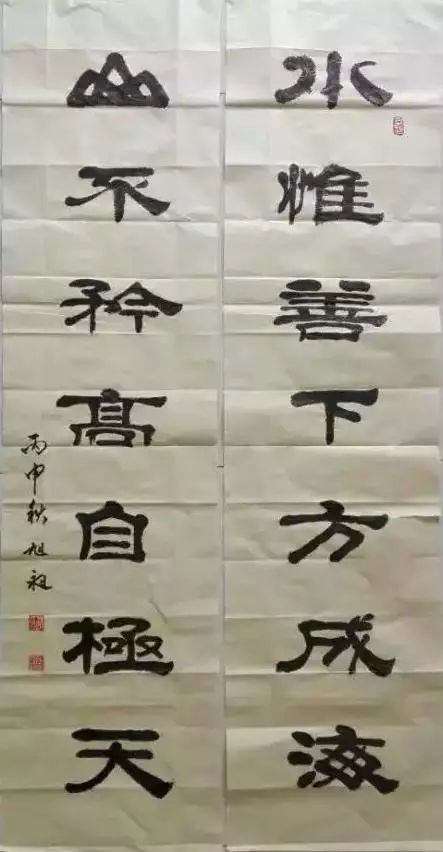 水惟善下方成海
山不矜高自極天
丙申秋旭祖